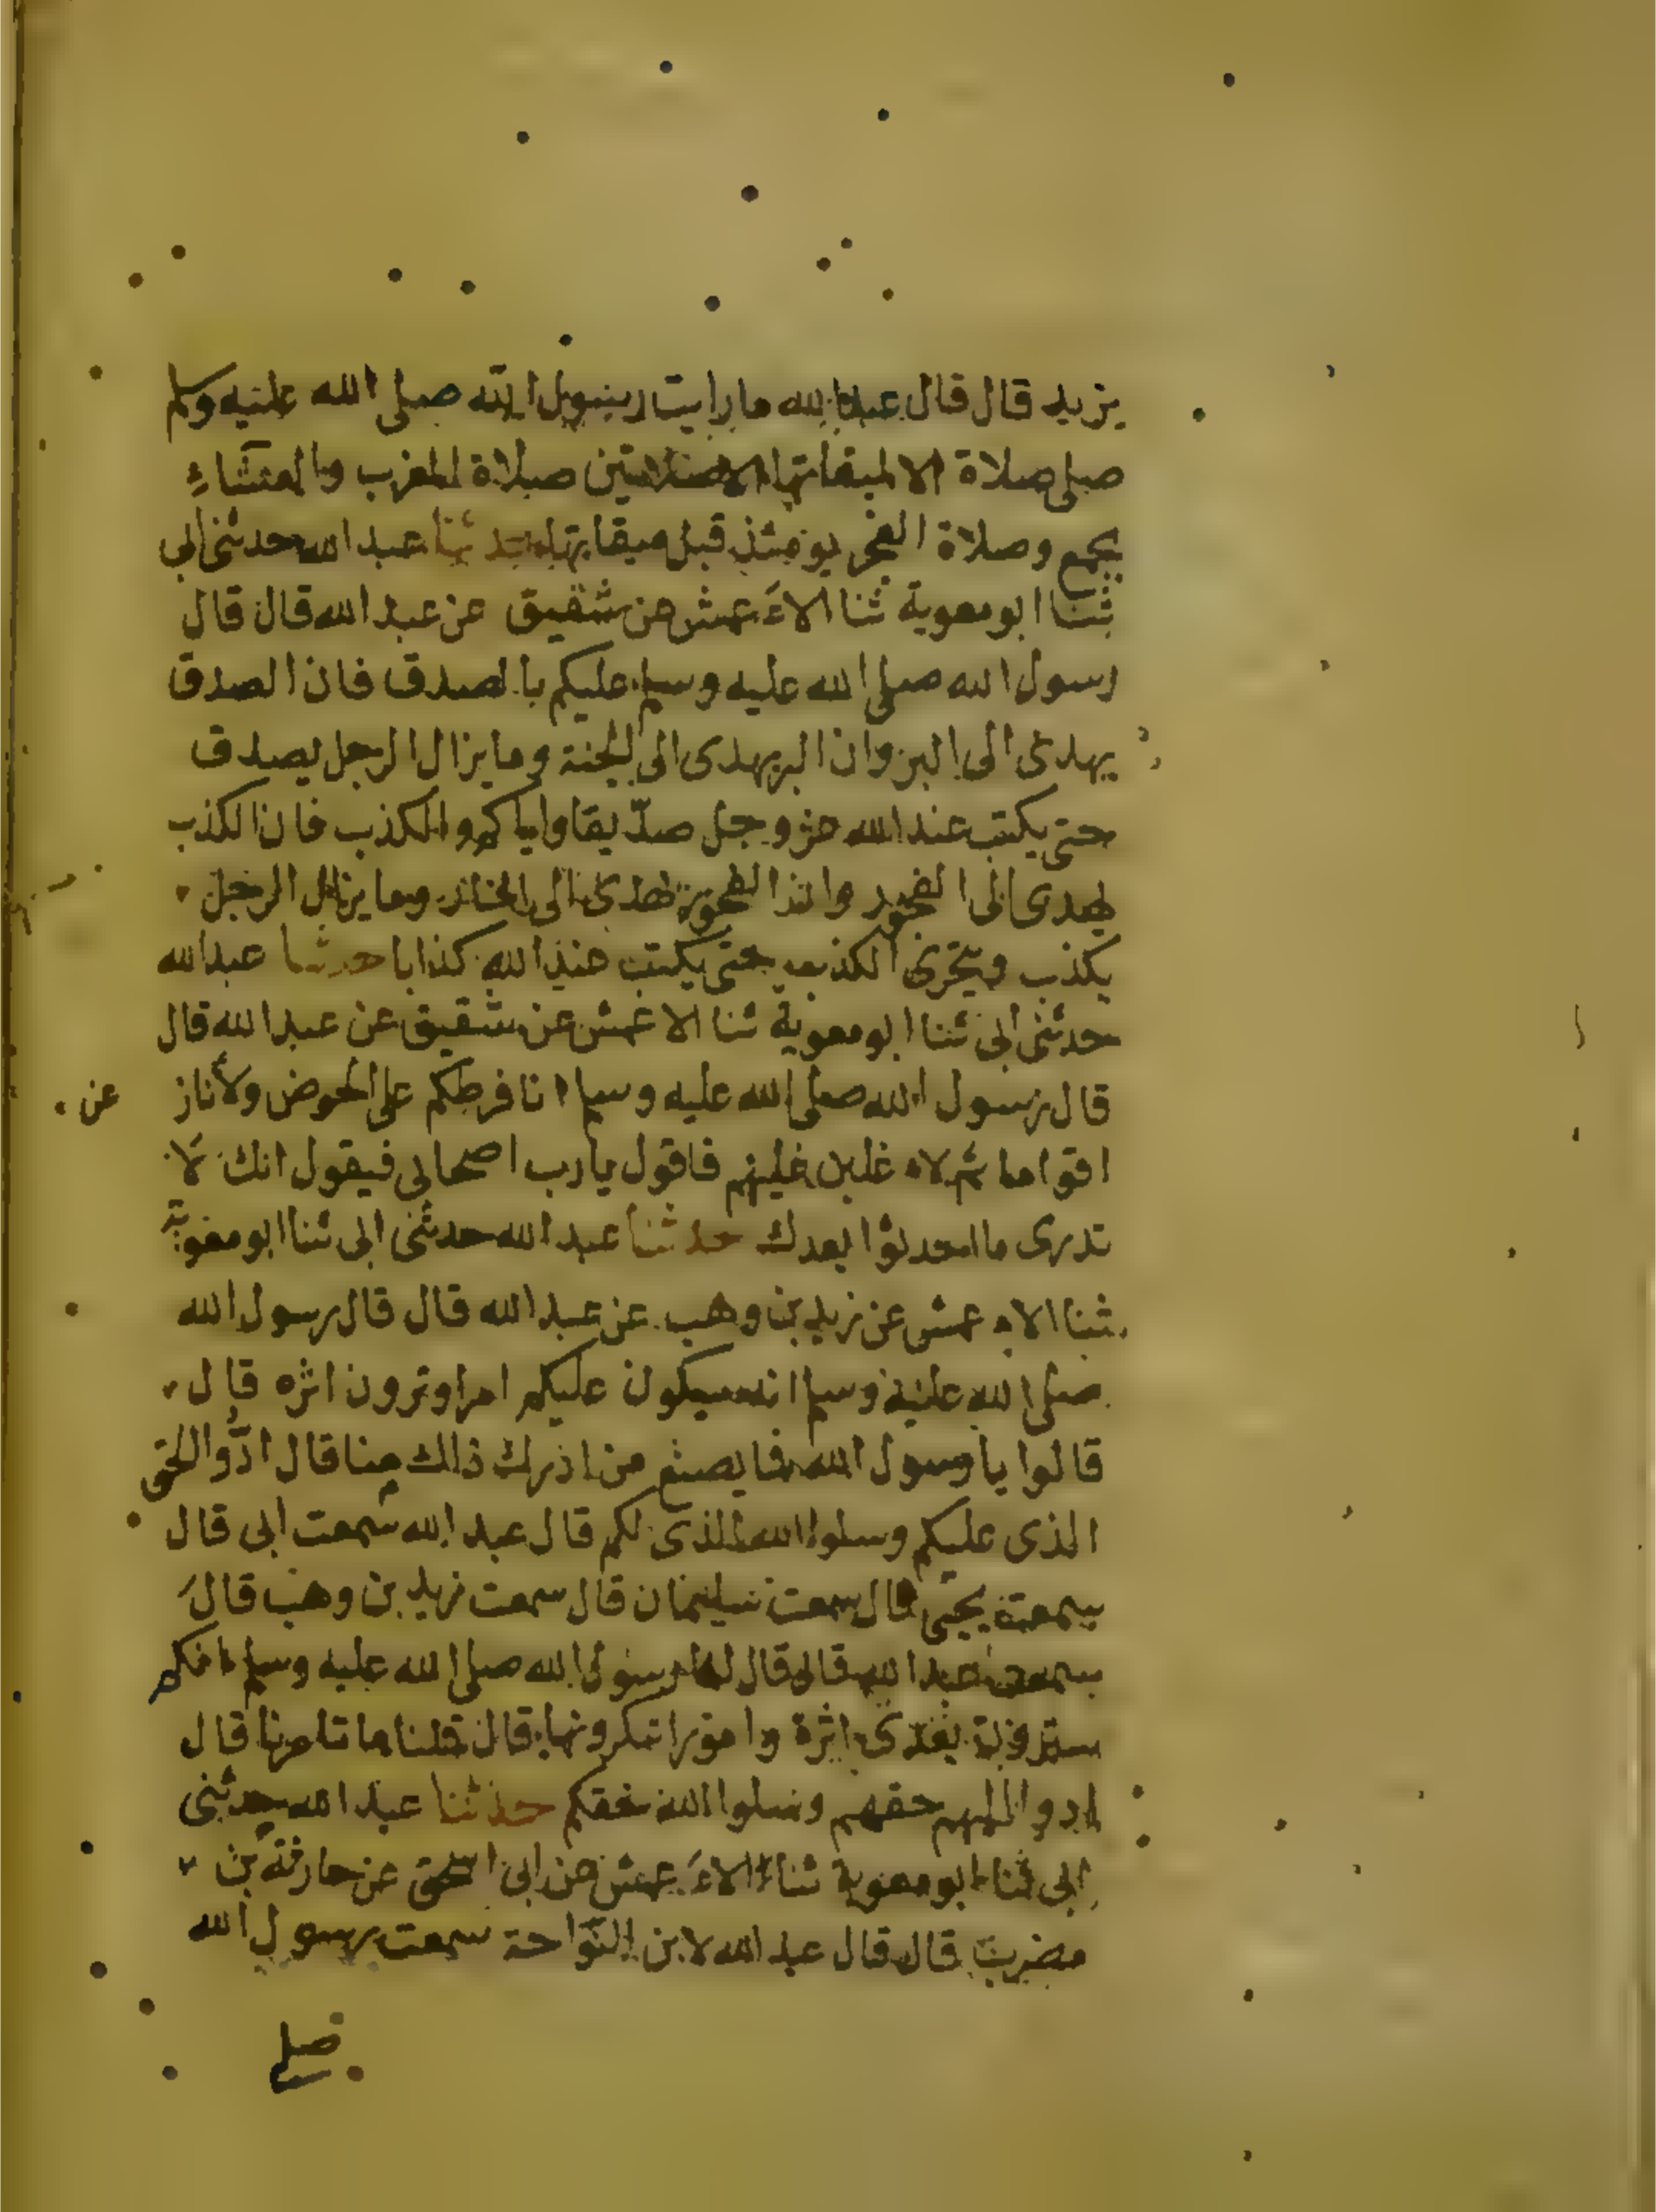 يزيد قال قال عبد الله ما رايت رسول الله صلى الله عليه وسلم
صلى صلاة الا لميقاتها الا صلاتين صلاة المغرب والعشاءِ
بجمع وصلاة الفجر يومئذ قبل ميقاتها حدثنا عبد الله حدثنى ابى
ثنا ابو معوية ثنا الاَعمش عن شقيق عن عبد الله قال قال
رسول الله صلى الله عليه وسلم عليكم بالصدق فان الصدق
يهدى الى البر وان البر يهدى الى الجنة وما يزال الرجل يصدق
حتى يكتب عند الله عز وجل صدّيقا واياكم والكذب فان الكذب
يهدى الى الفجور وان الفجور يهدى الى النار وما يزال الرجل
يكذب ويتحرى الكذب حتى يكتب عند الله كذابا حدثنا عبد الله
حدثنى ابى ثنا ابو معوية ثنا الاعمش عن شقيق عن عبد الله قال
قال رسول الله صلى الله عليه وسلم انا فرطكم على الحوض ولأناز
عن
اقواما ثم لاء غلبن عليهم فاقول يارب اصحابى فيقول انك لا
تدرى ما احدثوا بعدك حدثنا عبد الله حدثنى ابى ثنا ابو معوية
ثنا الاء عمش عن زيد بن وهب عن عبد الله قال قال رسول الله
صلى الله عليه وسلم انه سيكون عليكم امرا وترون اثره قال
قالوا يا رسول الله فما يصنع من ادرك ذاك منا قال ادُّوا الحق
الذى عليكم وسلوا الله الذى لكم قال عبد الله سمعت ابى قال
سمعت يحيى قال سمعت سليمان قال سمعت زيد بن وهب قالَ
سمعت عبد الله قال قال لنا رسول الله صلى الله عليه وسلم انكم
سترون بعدى اثرة وامورا تنكرونها قال قلنا ما تامرنا قال
ادوا اليهم حقهم وسلوا الله حقكم حدثنا عبد الله حدثنى
ابى ثنا ابو معوية ثنا الاَعمش عن ابى اسحق عن حارثة بن
مضرب قال قال عبد الله لابن النّواحة سمعت رسول الله
صلى